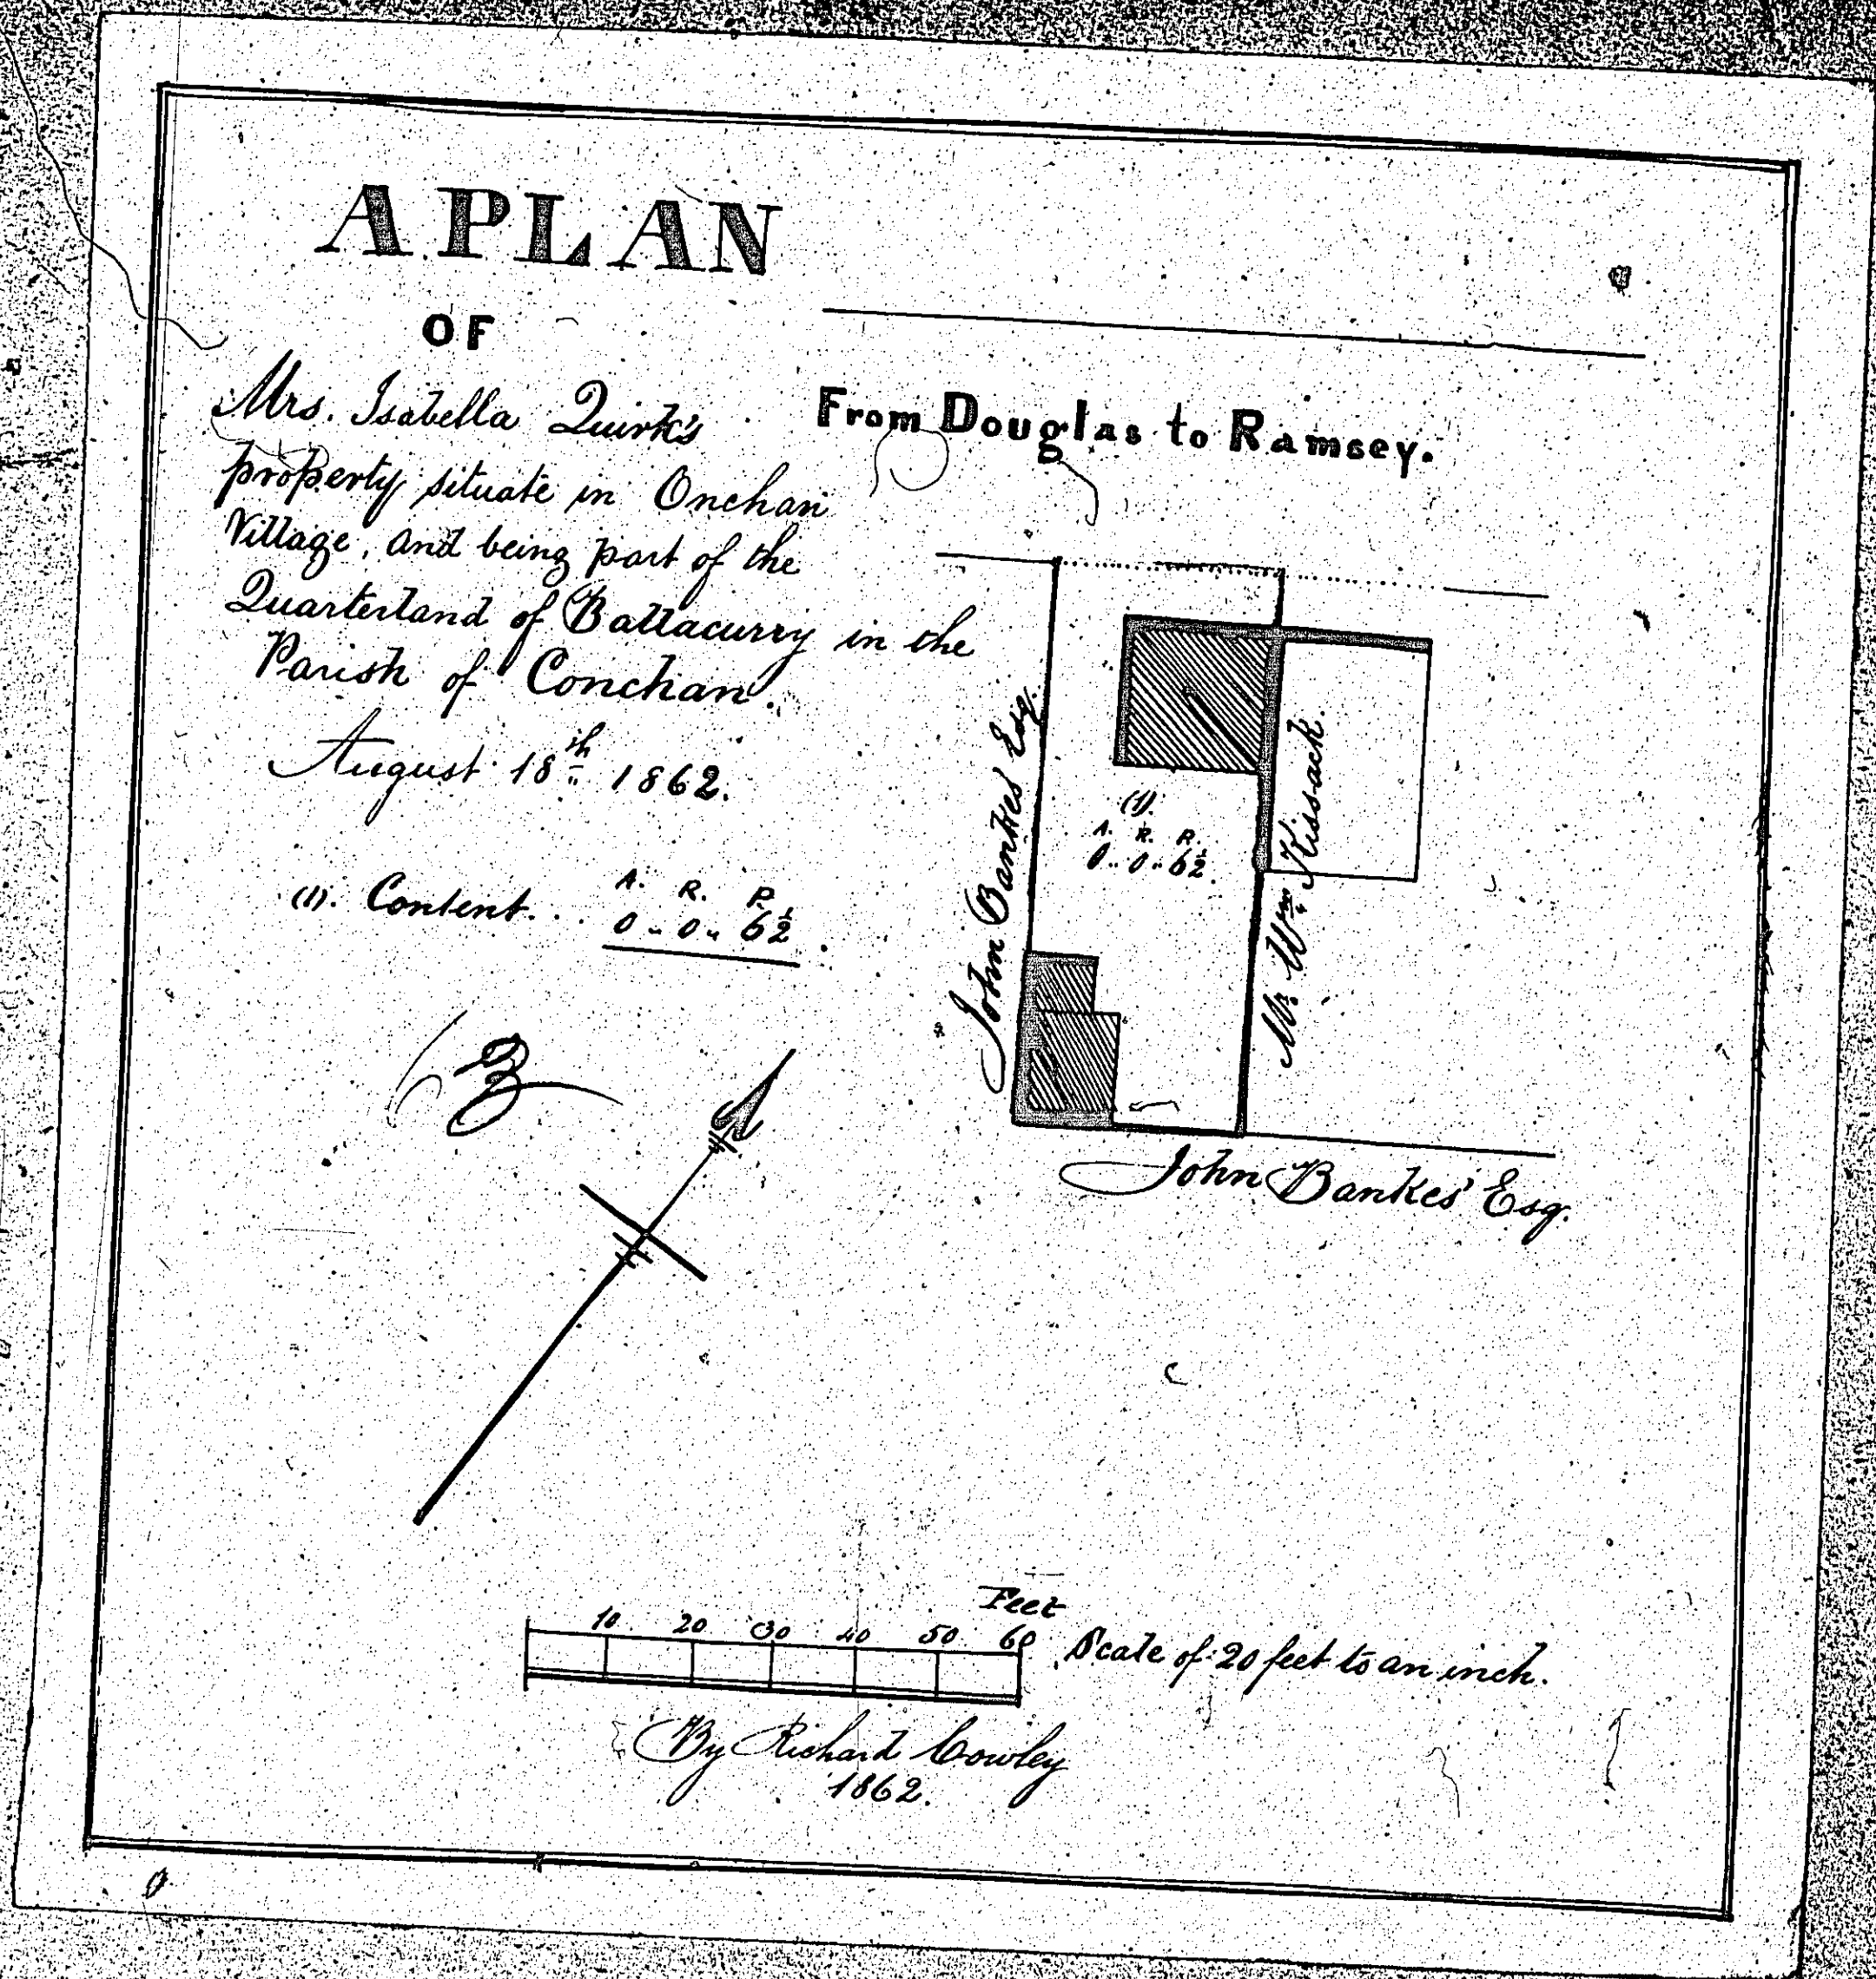 A PLAN
OF
Mrs. Isabella Quirk's
property situate in Onchan
Village, and being part of the
Quarterland of Ballacurry in the
Parish of Conchan.
August 18th 1862.
(1). Content. . A. R. P.
0 .. 0 .. 6½ .
From Douglas to Ramsey.
John Bankes Esq.
(1).
A. R. P.
0 .. 0 .. 6½.
Mr. Wm. Kissack.
John Bankes' Esq.
Feet
10 20 30 40 50 60
Scale of 20 feet to an inch.
By Richard Cowley
1862.